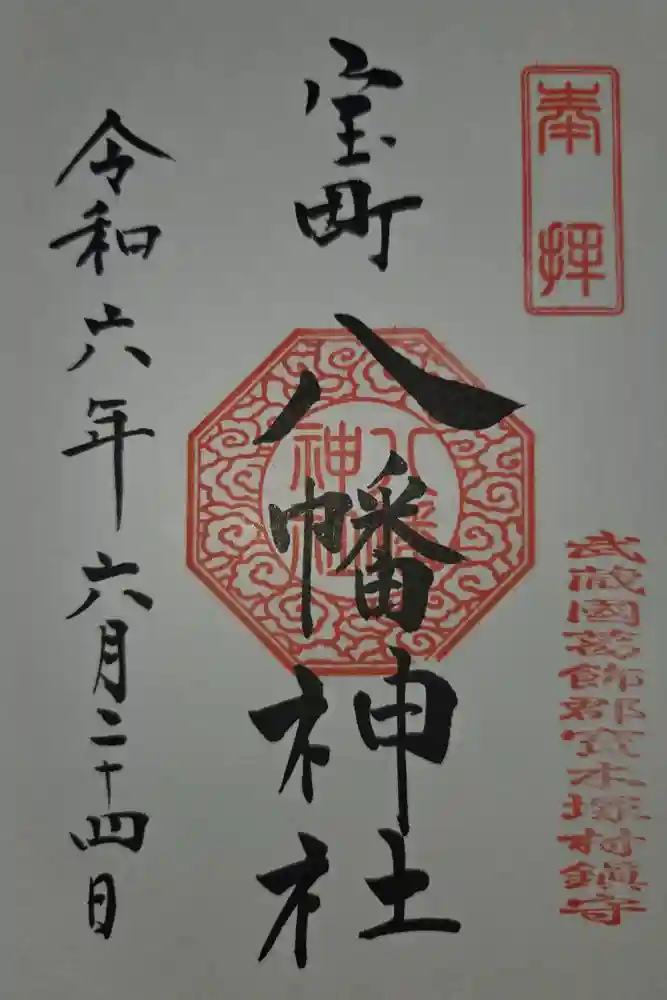 奉拝
武蔵國葛飾郡寳木塚村鎮守
宝町
八幡神社
八幡
神社
令和六年六月二十四日